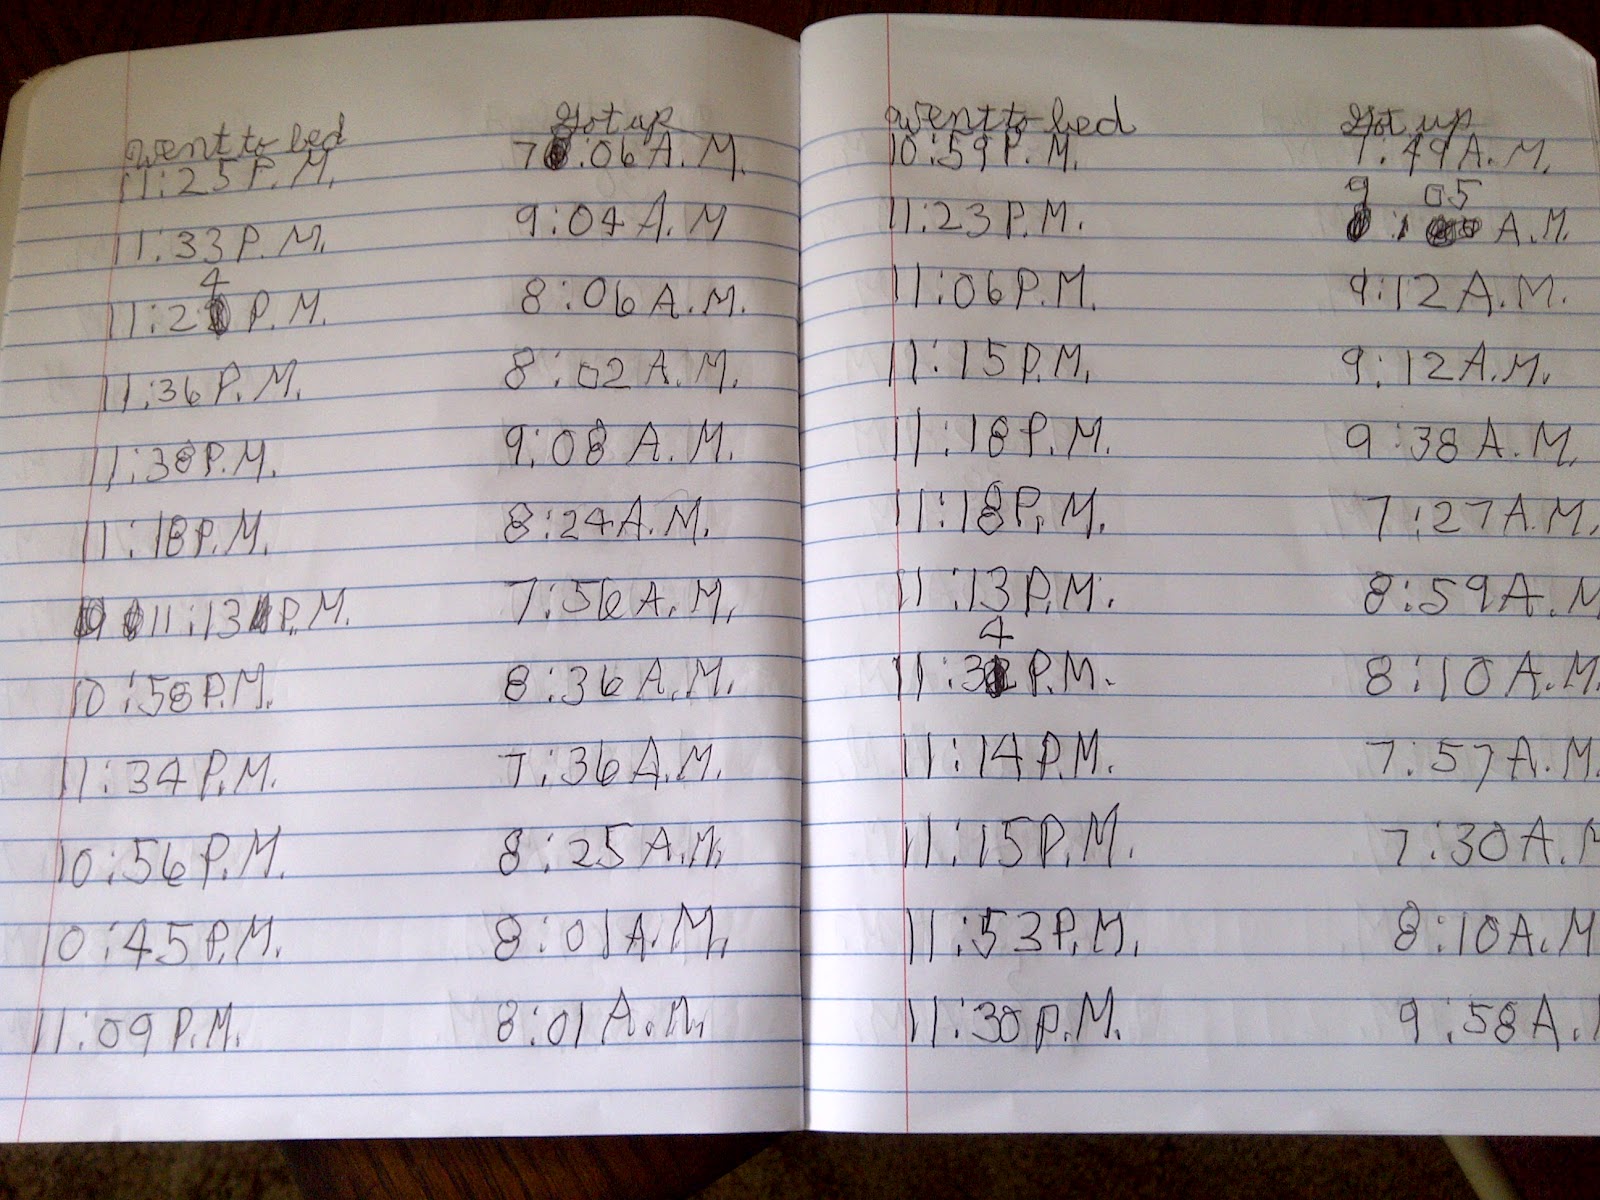 Went to bed Got up
11:25 P.M. 7:06 A.M.
11:33 P.M. 9:04 A.M
11:24 P.M. 8:06 A.M.
11:36 P.M. 8:02 A.M.
11:38 P.M. 9:08 A.M.
11:18 P.M. 8:24 A.M.
11:13 P.M. 7:56 A.M.
10:58 P.M. 8:36 A.M.
11:34 P.M. 7:36 A.M.
10:56 P.M. 8:25 A.M.
10:45 P.M. 8:01 A.M.
11:09 P.M. 8:01 A.M.
Went to bed Got up
10:59 P.M. 7:49 A.M.
11:23 P.M. 9:05 A.M.
11:06 P.M. 9:12 A.M.
11:15 P.M. 9:12 A.M.
11:18 P.M. 9:38 A.M.
11:18 P.M. 7:27 A.M.
11:13 P.M. 8:59 A.M
11:34 P.M. 8:10 A.M.
11:14 P.M. 7:57 A.M.
11:15 P.M. 7:30 A.M
11:53 P.M. 8:10 A.M
11:30 P.M. 9:58 A.